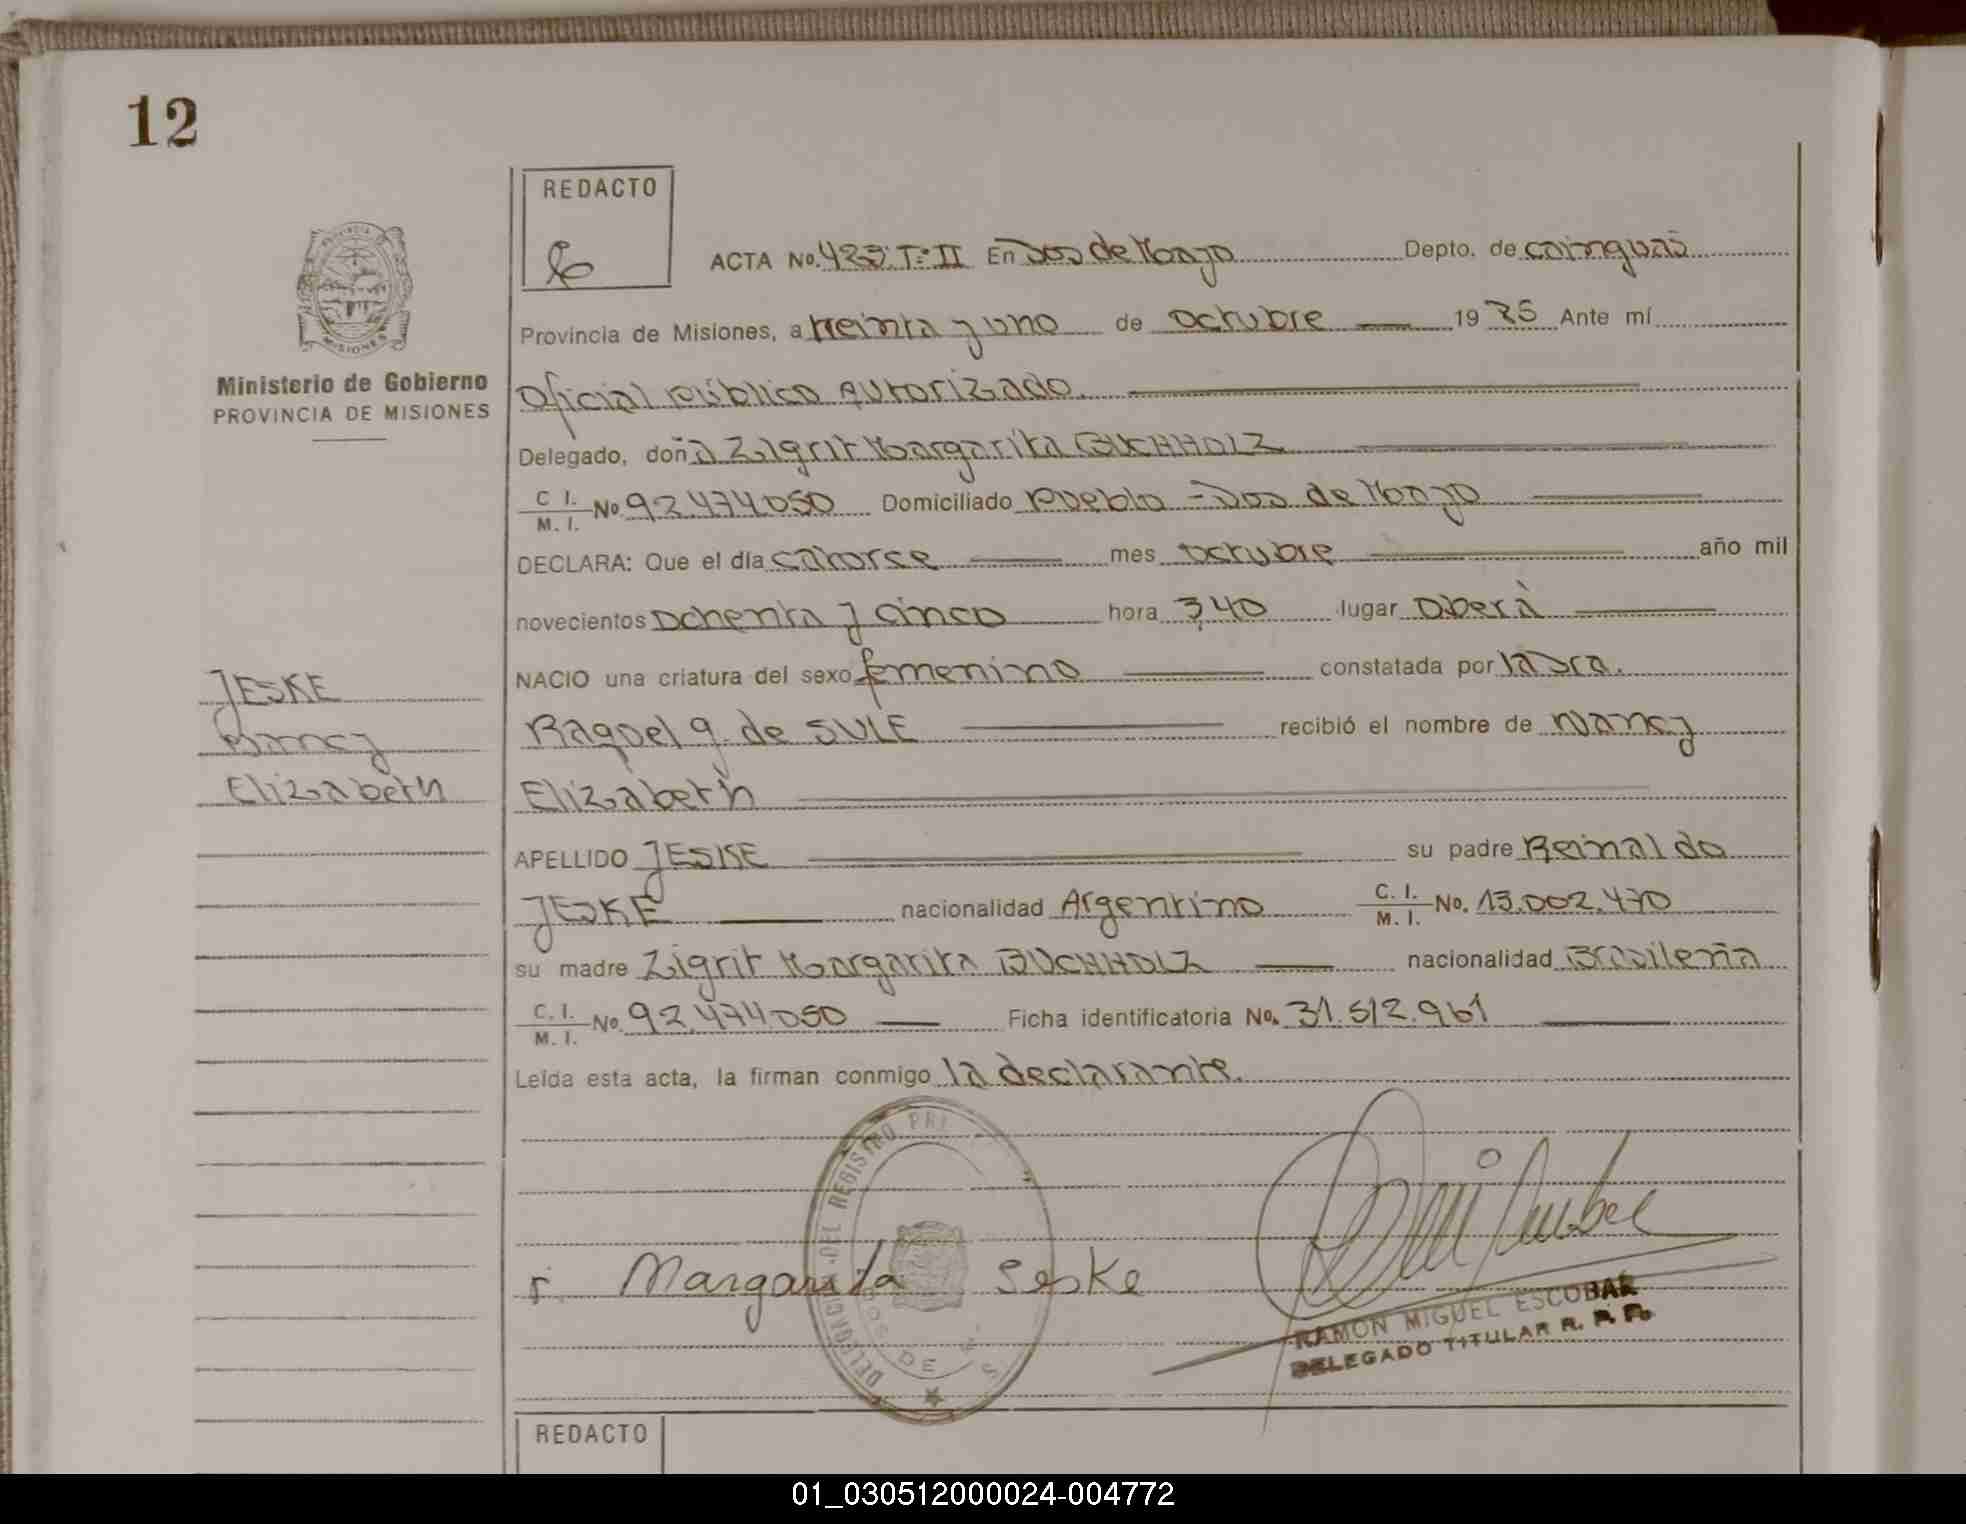 12
REDACTO
ACTA No. 423 T:II En Dos de Mayo Depto. de Cainguas
Provincia de Misiones, a treinta y uno de octubre 19 85 Ante mí
Oficial público Autorizado.
Ministerio de Gobierno
PROVINCIA DE MISIONES
Delegado, doña Zigrit Margarita BUCHHOLZ
C I.
M. I. No. 92.474.050 Domiciliado Pueblo - Dos de Mayo
DECLARA: Que el día catorse mes octubre año mil
novecientos ochenta y cinco hora 3,40 lugar Oberá
NACIO una criatura del sexo femenino constatada por la Dra.
JESKE
Nancy
Elizabeth
Raquel g. de SULE recibió el nombre de Nancy
Elizabeth
APELLIDO JESKE su padre Reinaldo
JESKE nacionalidad Argentino C. I.
M. I. No. 13.002.470
su madre Zigrit Margarita BUCHHOLZ nacionalidad Brasileña
C. I.
M. I. No. 92.474.050 Ficha identificatoria No. 31.512.961
Leída esta acta, la firman conmigo la declarante.
DELEGACION DEL REGISTRO
DOS DE
Margarita Seske
RAMON MIGUEL ESCOBAR
DELEGADO TITULAR R. P. P.
REDACTO
01_030512000024-004772